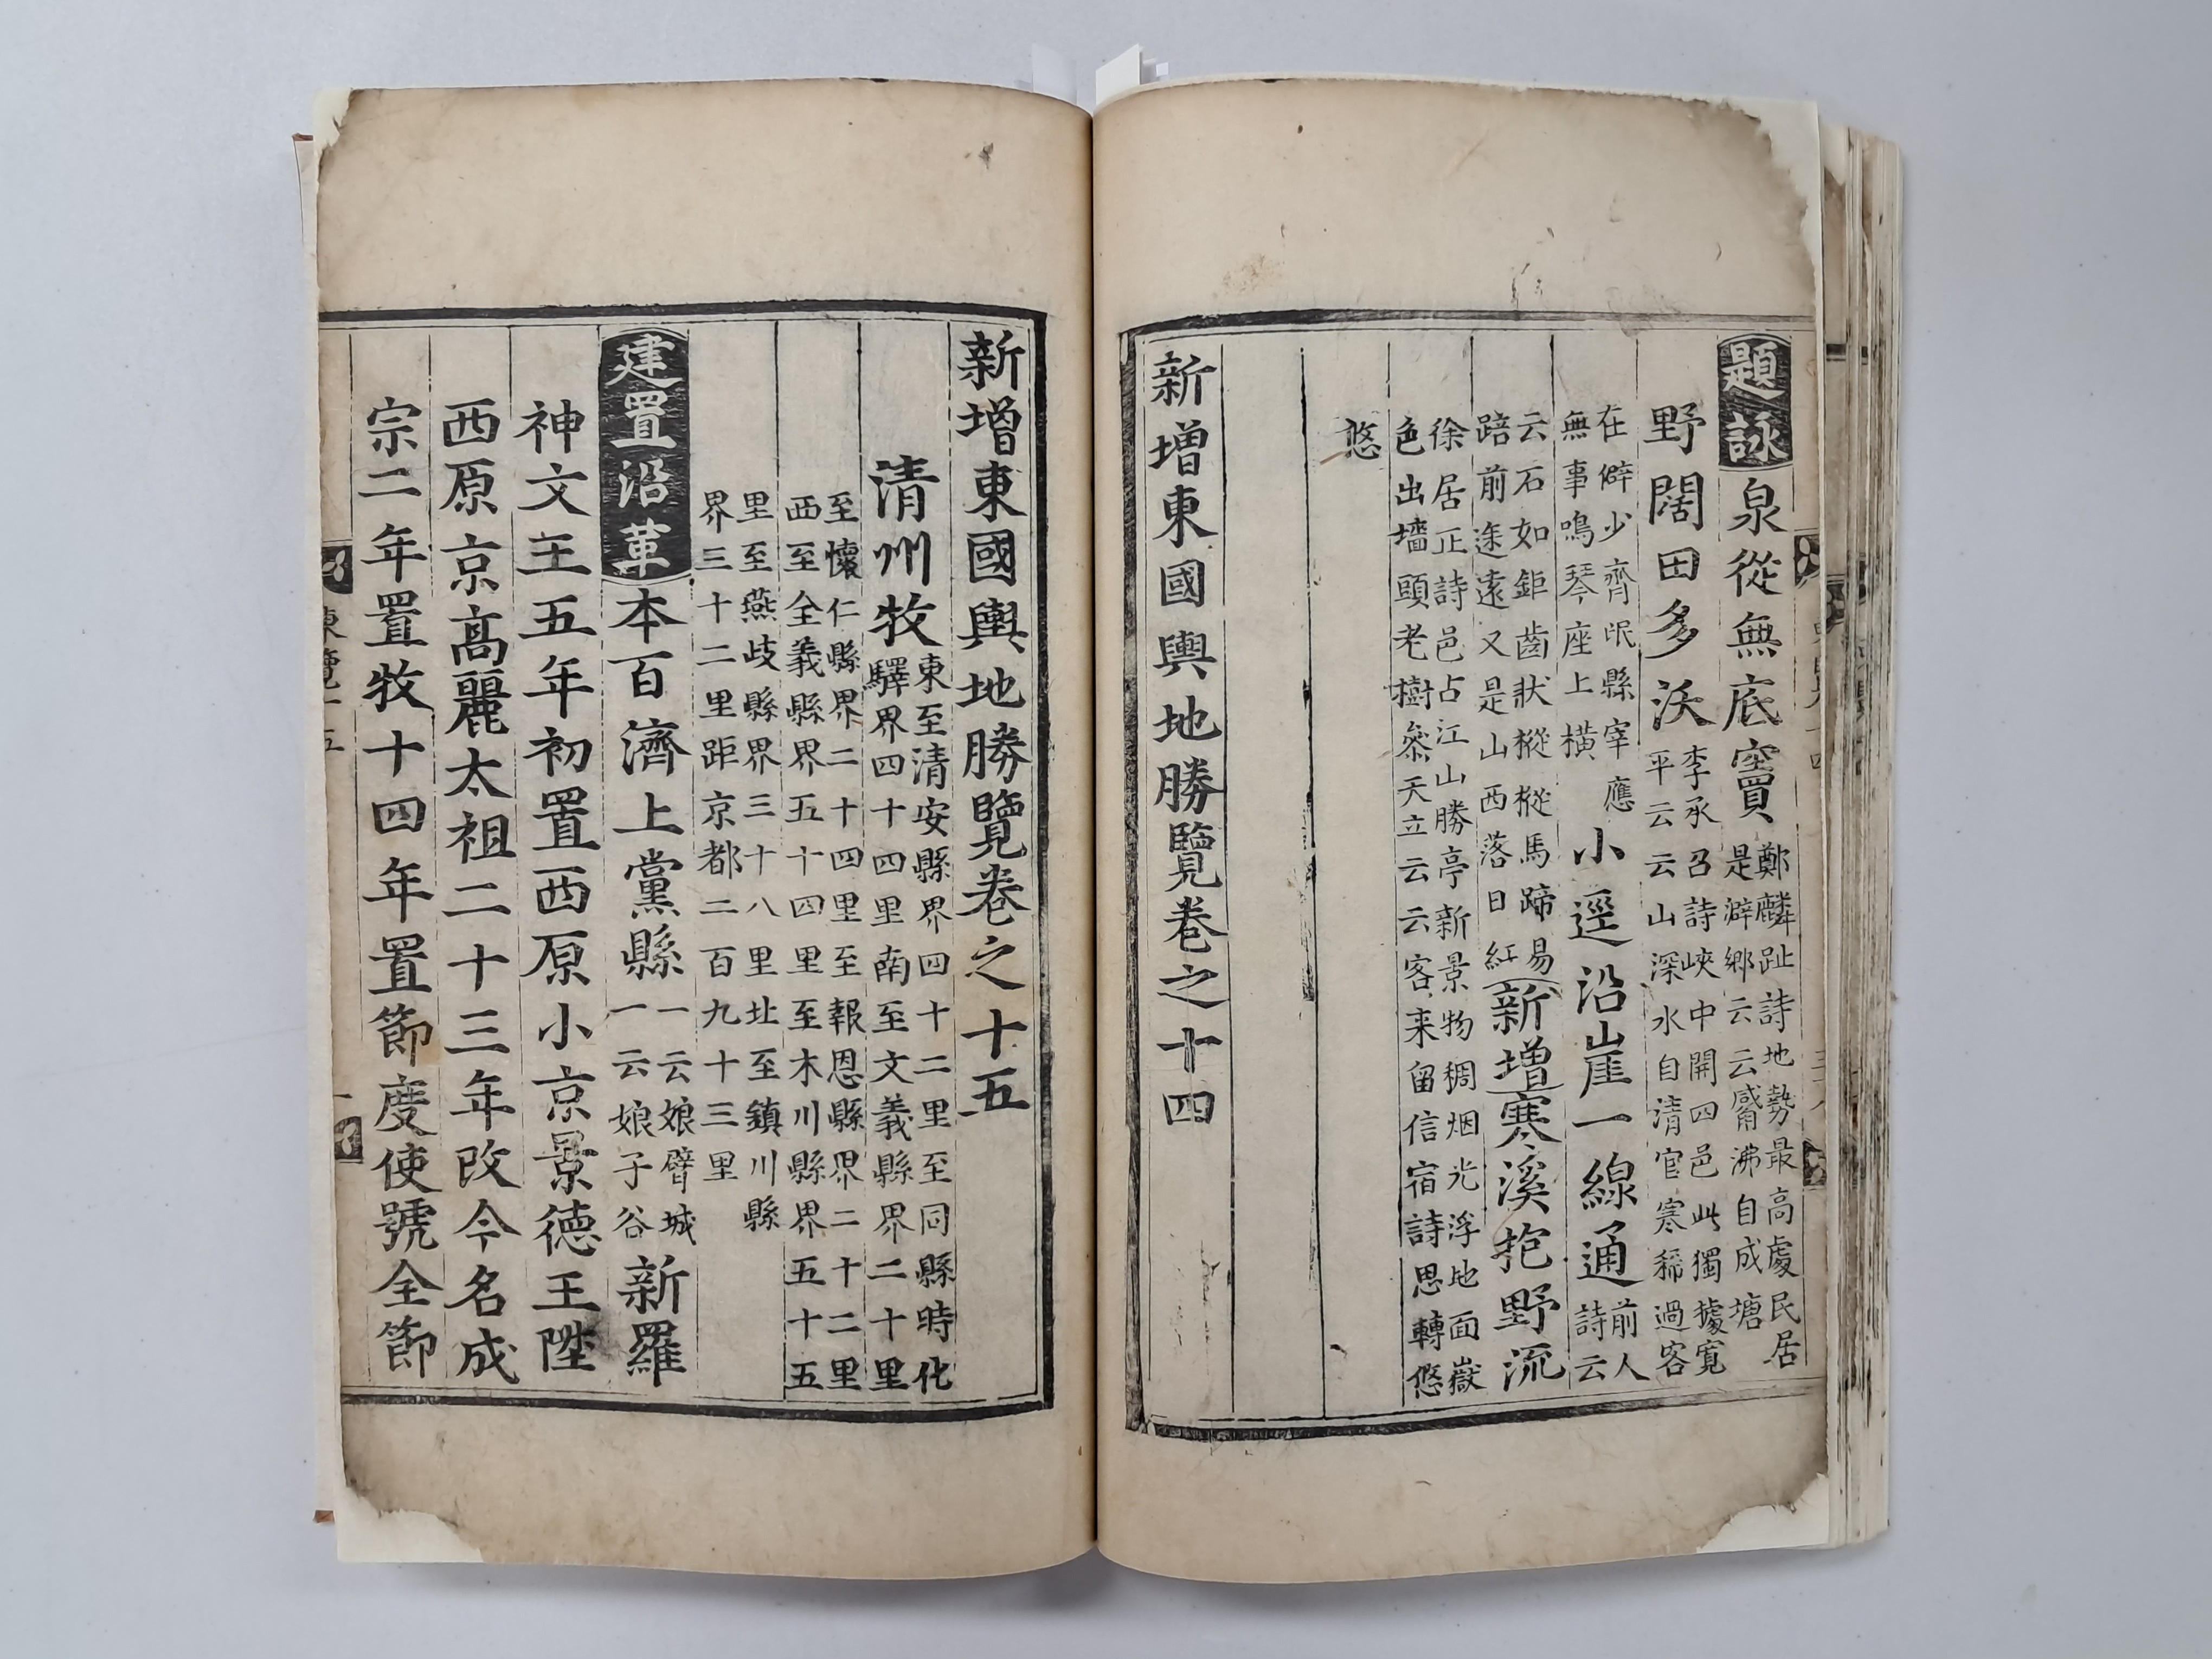 題詠泉從無底竇鄭麟趾詩地勢最高處民居
是澼鄉云云觱沸自成塘
野闊田多沃李承召詩峽中開四邑此獨據寬
平云云山深水自清官寒稀過客
在僻少齊氓縣宰應
無事鳴琴座上橫
小逕沿崖一線通前人
詩云
云石如鉅齒狀樅樅馬蹄易
踣前途遠又是山西落日紅
新增寒溪抱野流
徐居正詩邑占江山勝亭新景物稠烟光浮地面嶽
色出墻頭老樹叅天立云云客来留信宿詩思轉悠
悠
新增東國輿地勝覽卷之十四
新增東國輿地勝覽卷之十五
清州牧東至清安縣界四十二里至同縣時化
驛界四十四里南至文義縣界二十里
至懷仁縣界二十四里至報恩縣界二十二里
西至全義縣界五十四里至木川縣界五十五
里至燕歧縣界三十八里北至鎮川縣
界三十二里距京都二百九十三里
建置沿革本百濟上黨縣一云娘臂城
一云娘子谷新羅
神文王五年初置西原小京景德王陞
西原京高麗太祖二十三年改今名成
宗二年置牧十四年置節度使號全節